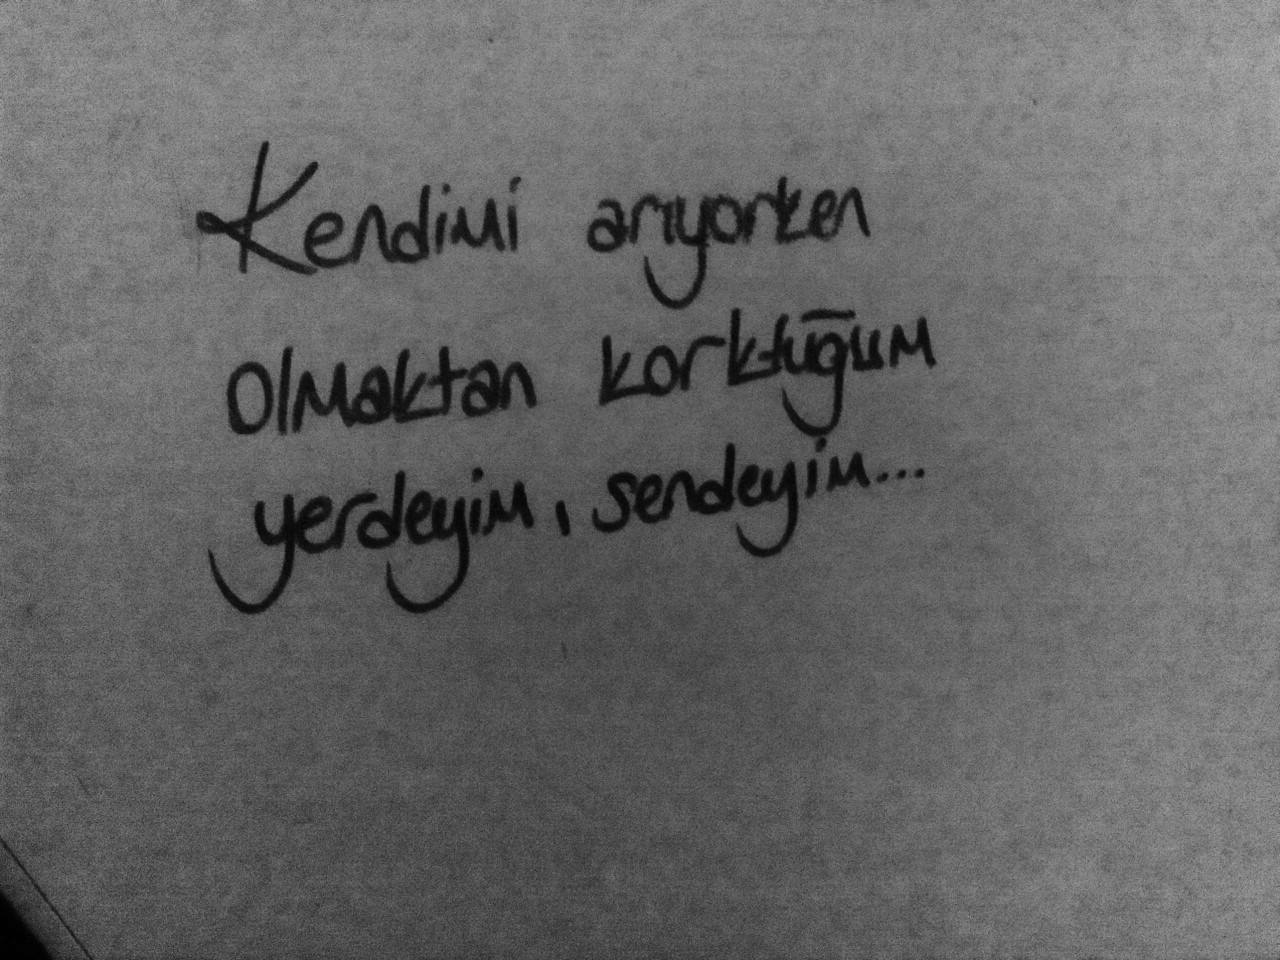 Kendimi arıyorken
olmaktan korktuğum
yerdeyim, sendeyim...